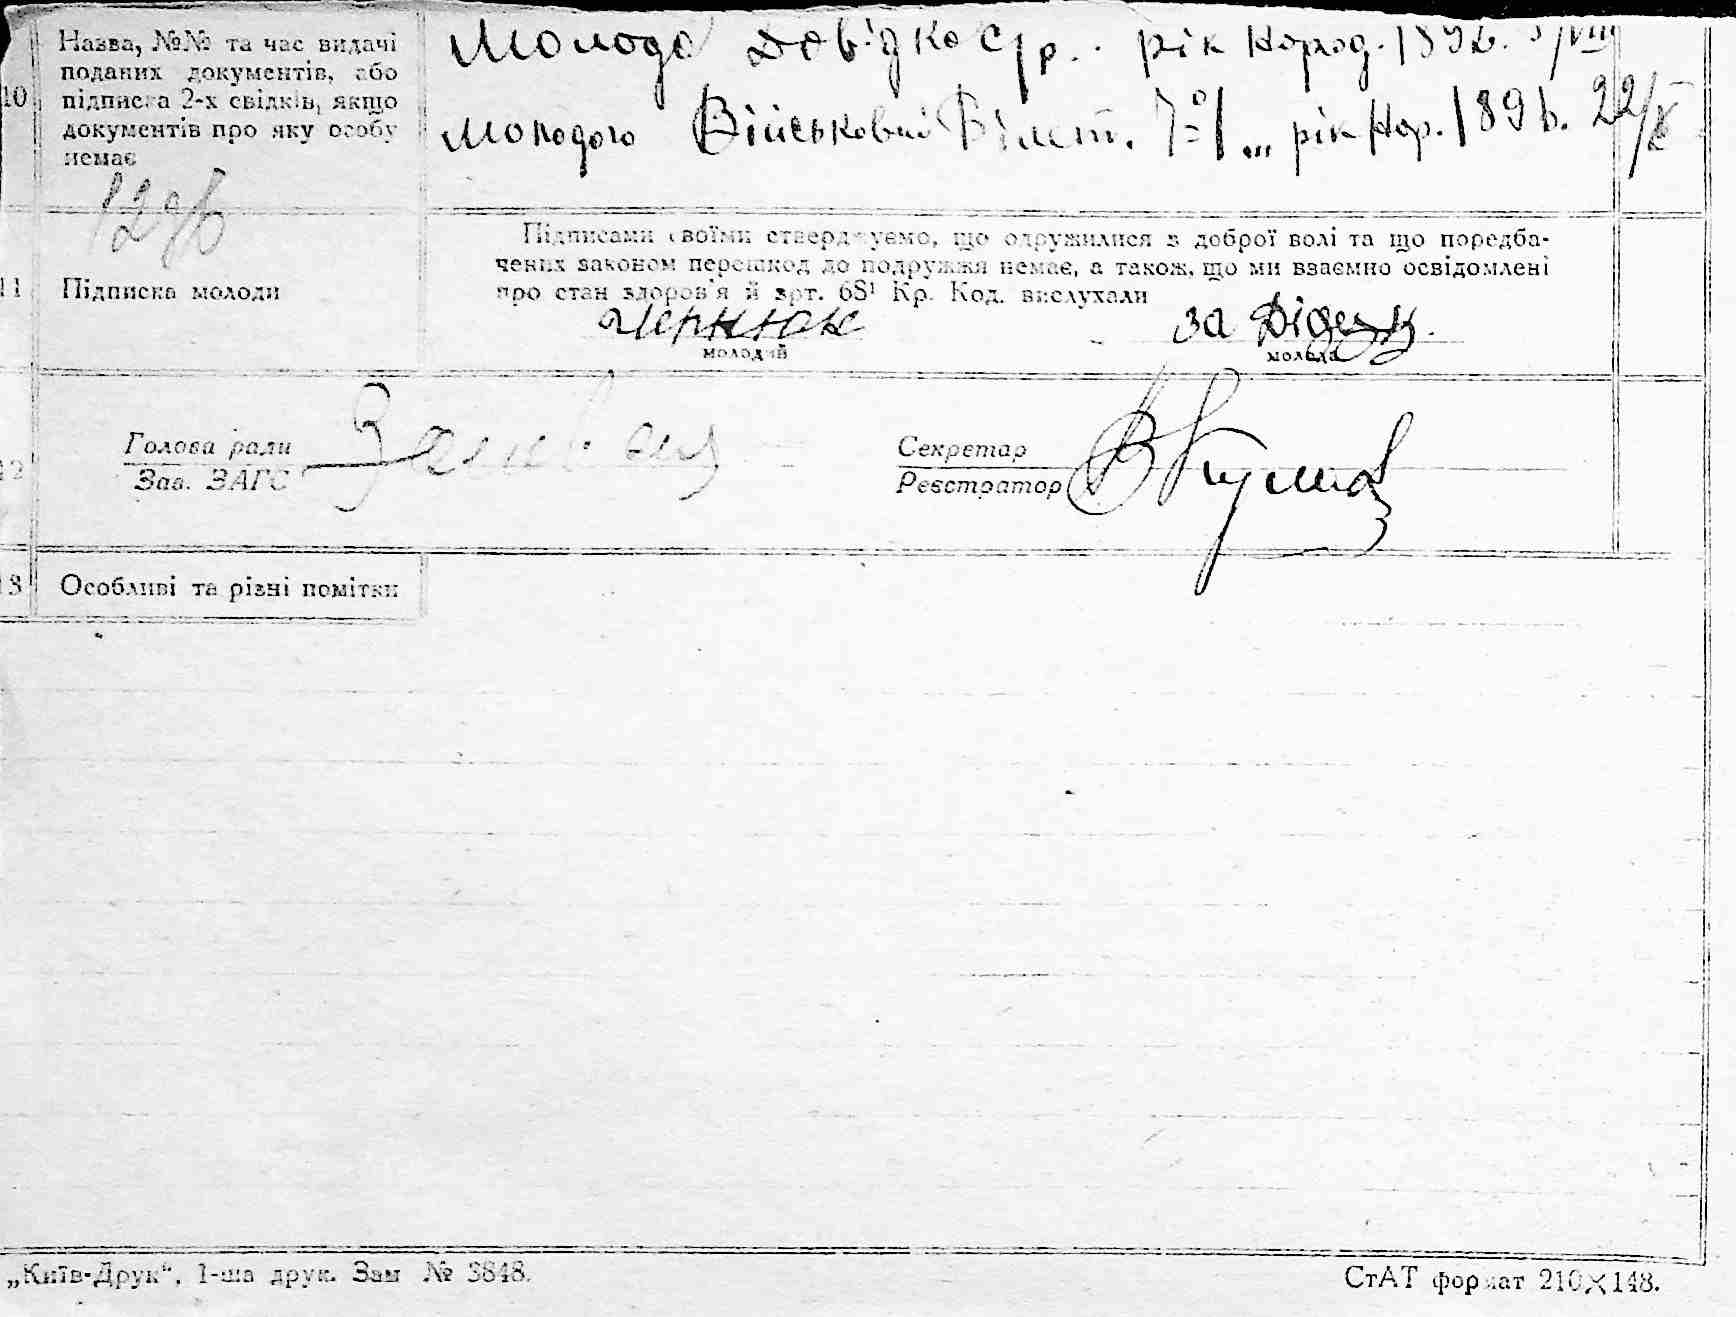 10 Назва, №№ та час видачі
поданих документів, або
підписка 2-х свідків, якщо
документів про яку особу
немає
Молода Довідка с/р. рік народ. 189 /VIII
Молодого Військовий Білет. рік Нар. 189 22/X
11 Підписка молоди
Підписами своїми стверджуємо, що одружилися з доброї волі та що поредба-
чених законом перешкод до подружжя немає, а також, що ми взаємно освідомлені
про стан здоров'я й арт. 68¹ Кр. Код. вислухали
Чернюк
за
молодий
молода
12 Голова ради
Зав. ЗАГС
Секретар
Реєстратор
13 Особливі та різні помітки
„Київ-Друк“, 1-ша друк. Зам № 3848.
СтАТ формат 210×148.